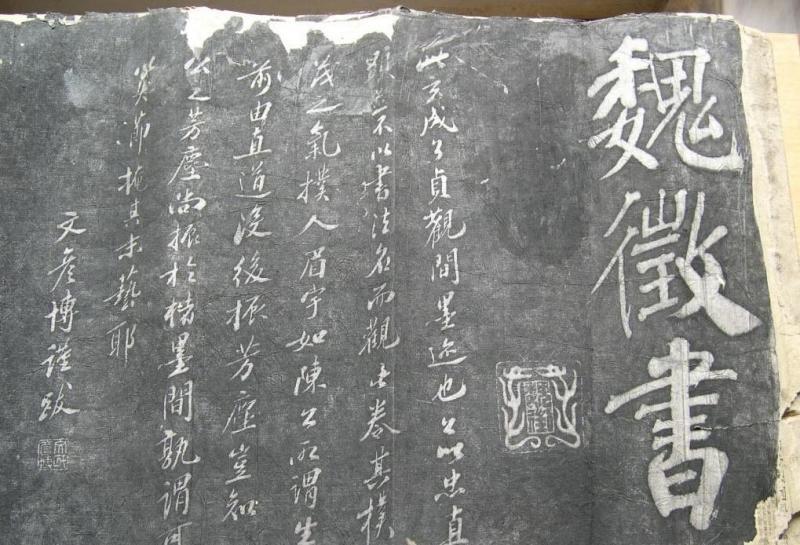 魏徵書
此玄成公貞觀間墨迹也公以忠貞
顯豈以書法名而觀此卷其樸
茂之氣撲人眉宇如陳公所謂生
前由直道沒後振芳塵豈知
公之芳塵尚振於楮墨間孰謂
其末藝耶
文彥博謹跋